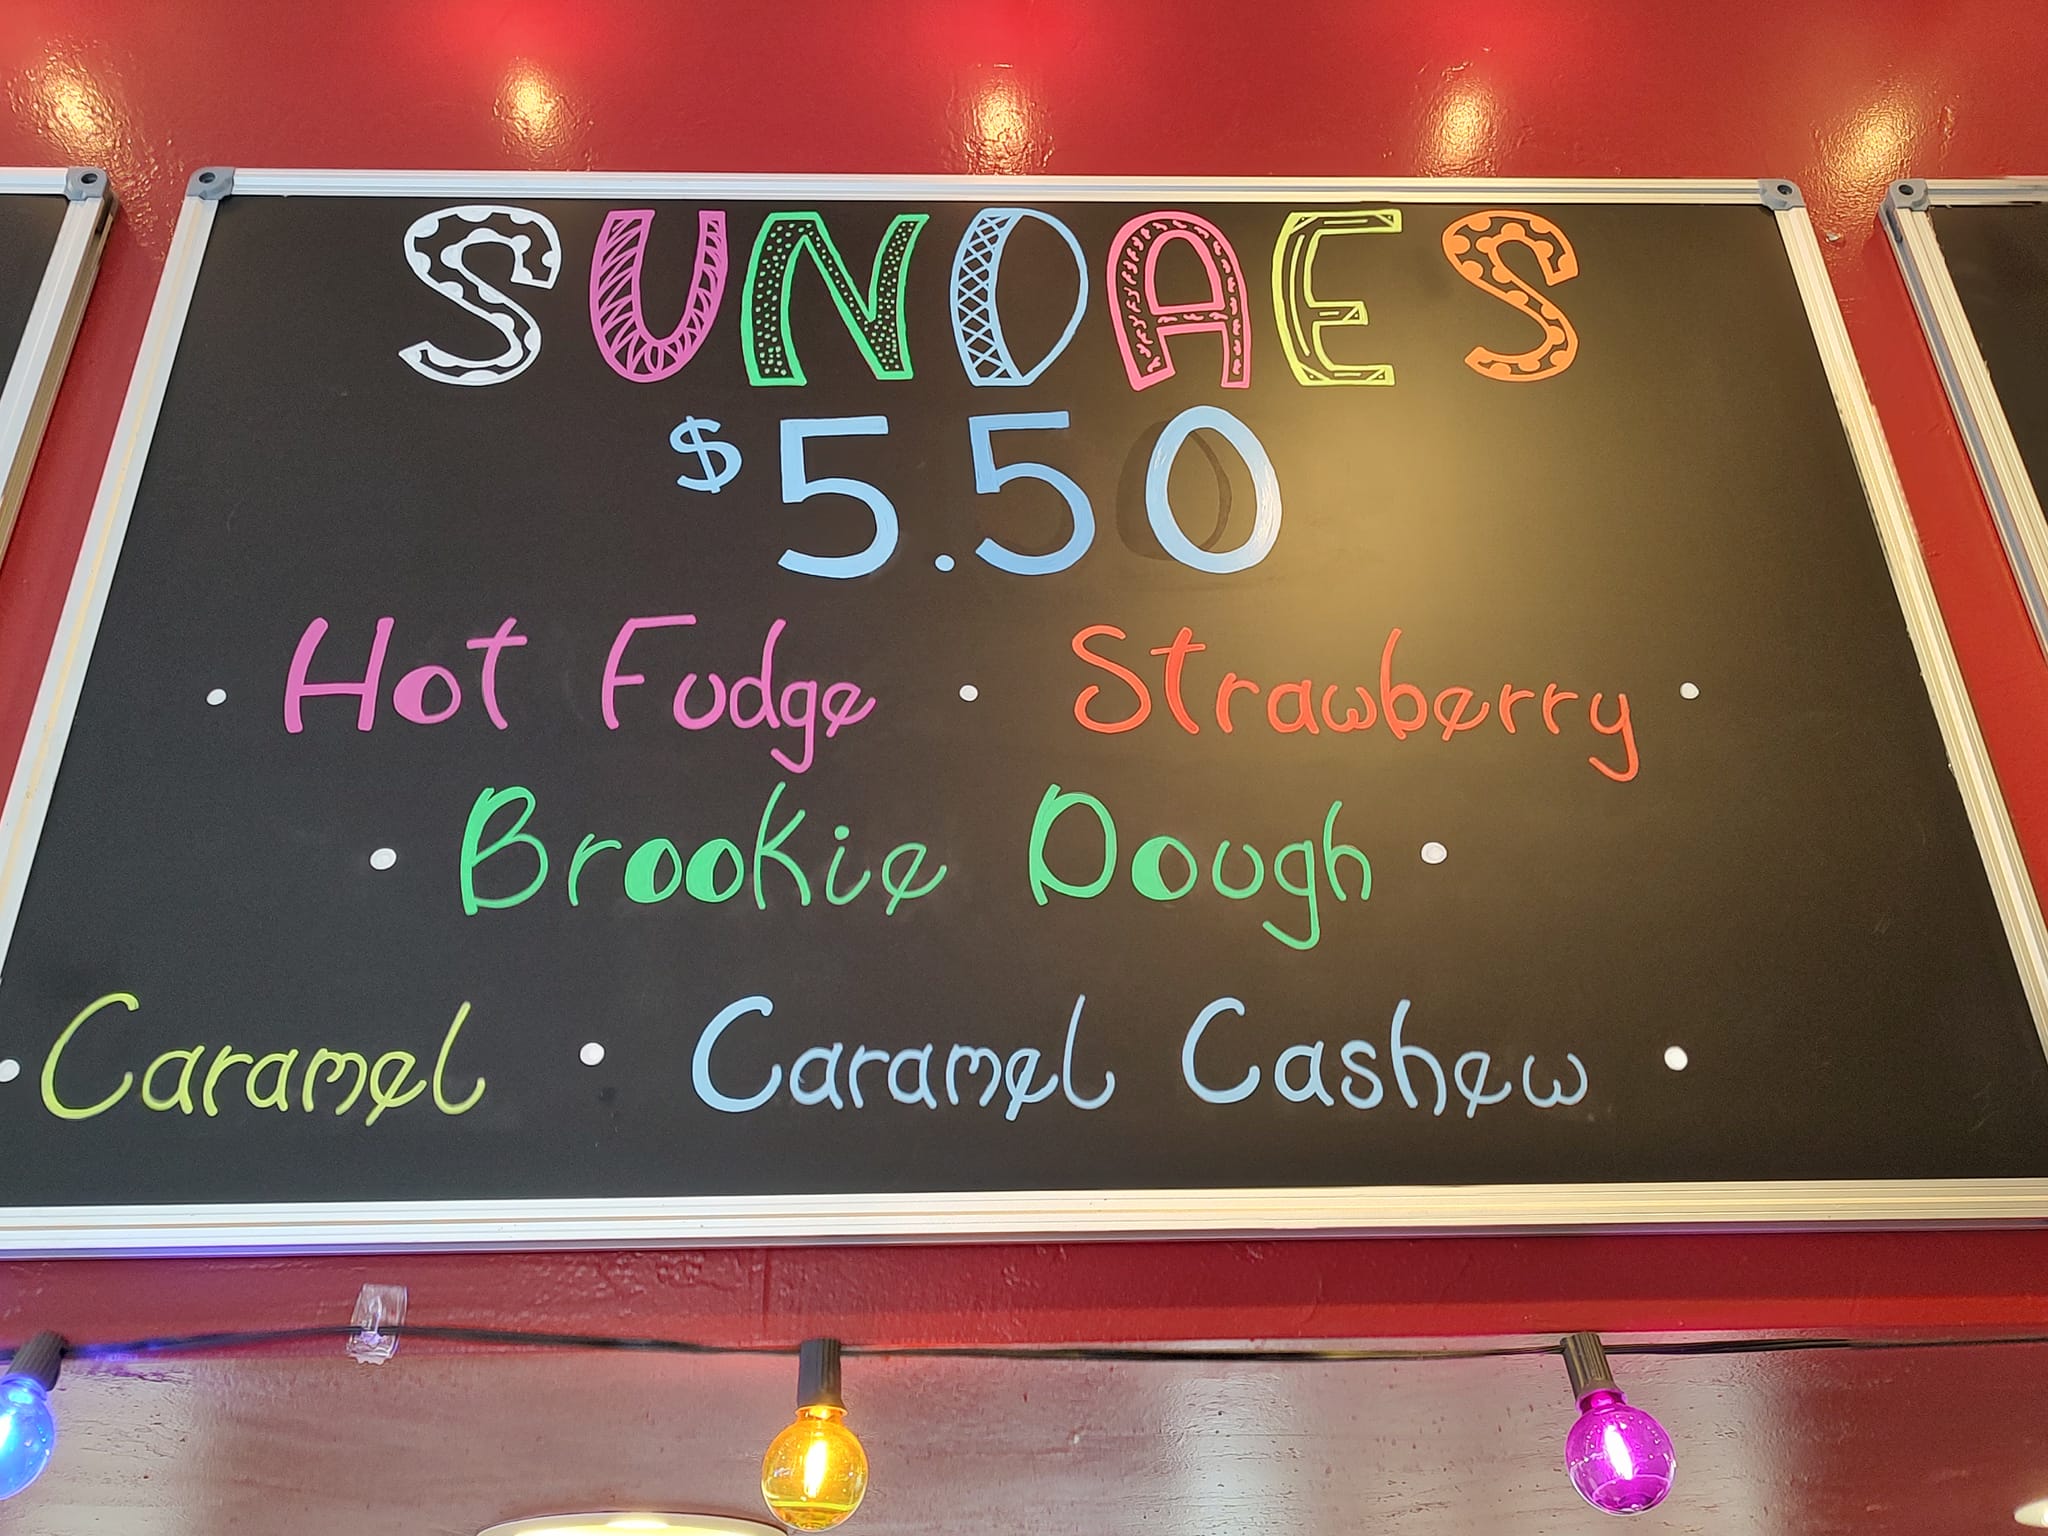 SUNDAES
$5.50
• Hot Fudge • Strawberry •
• Brookie Dough •
• Caramel • Caramel Cashew •